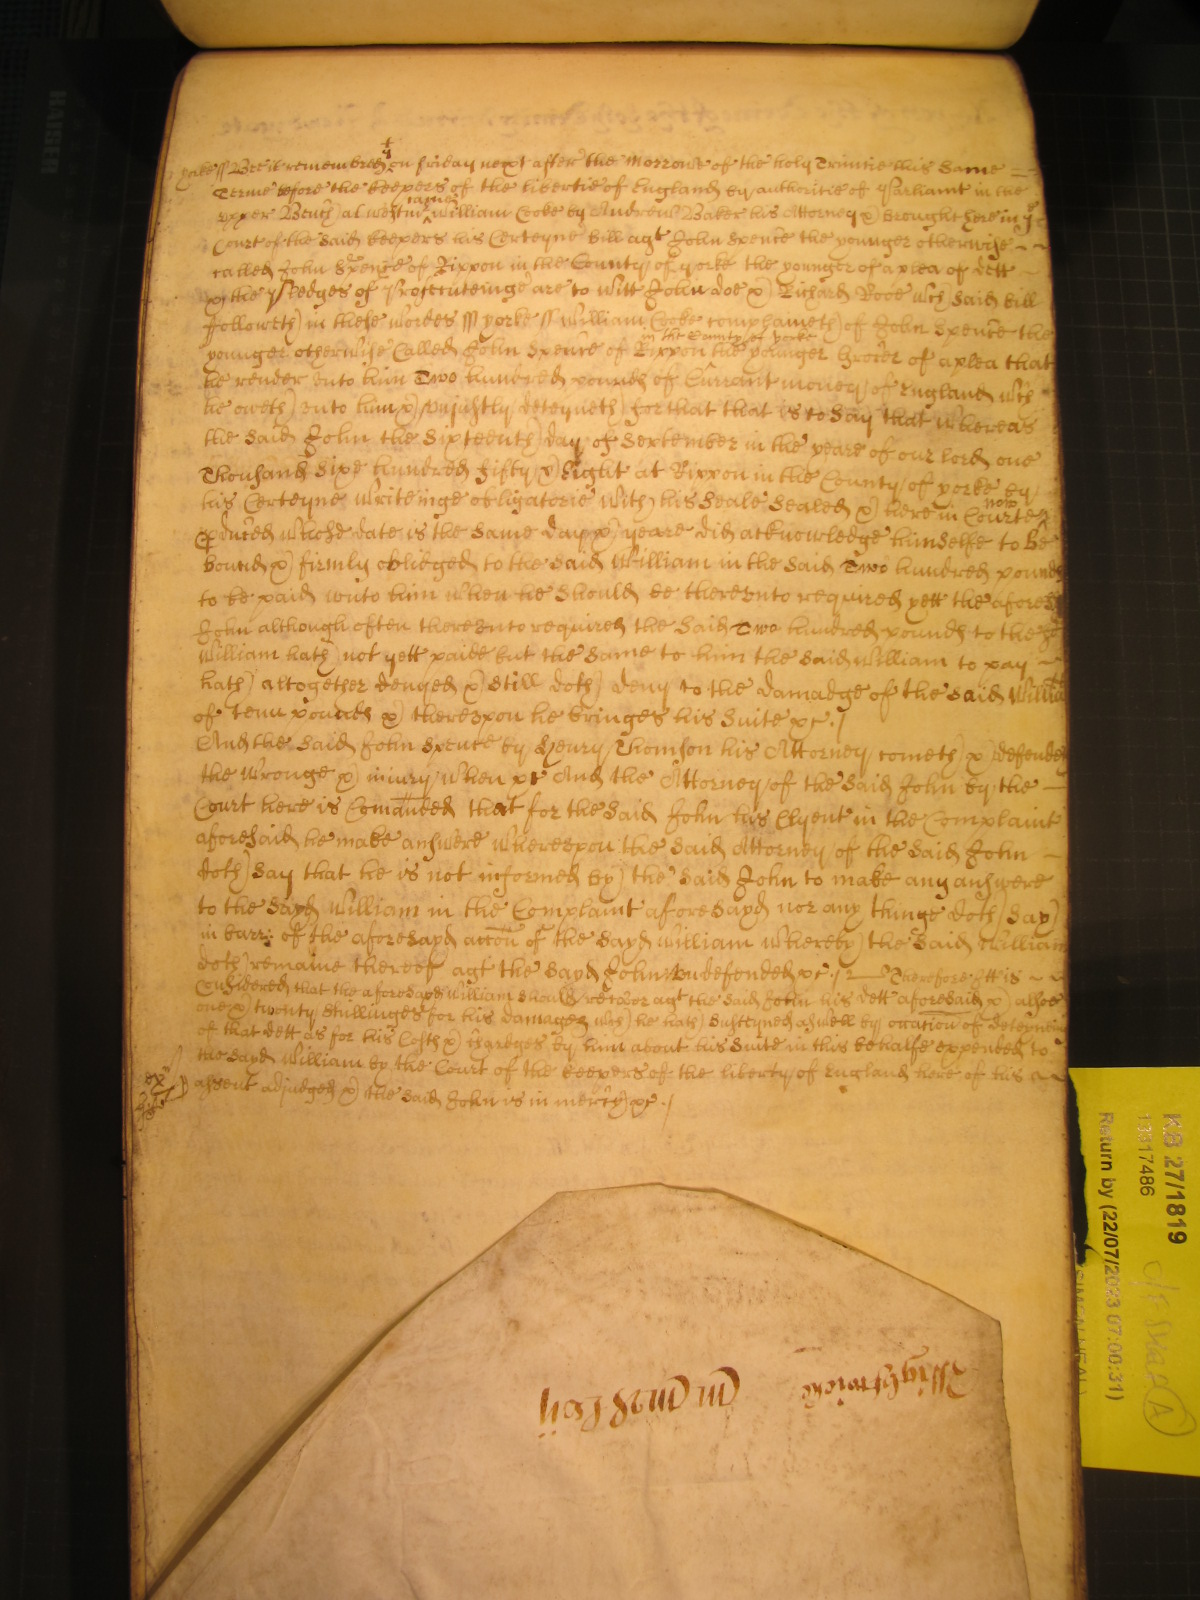 Yorke ss Bee it remembred yt on Friday next after the Morrowe of the holy Trinitie this same
Terme before the keepers of the libertie of England by authoritie of Parliamt in the
upper Bench at Westmr came William Cooke by Andrew Baker his Attorney & brought here in ye
Court of the said keepers his Certeyne bill agt John Spence the younger otherwise
called John Spence of Rippon in the County of yorke the younger of a plea of dett
& the Pledges of Prosecuteinge are to witt John doe & Richard Rooe wch said bill
followeth in these wordes ss yorke ss William Cooke complaineth of John Spence the
younger otherwise Called John Spence of Rippon in the County of yorke the younger Grocer of a plea that
he render unto him Two hundred pounds of Currant money of England wch
he oweth unto him & unjustly deteyneth for that that is to say that whereas
the said John the Sixteenth day of September in the yeare of our lord one
Thousand Sixe hundred fifty & Eight at Rippon in the County of yorke by
his Certeyne writeinge obligatorie with his Seale Sealed & here in Courte now
produced whose date is the same day & yeare did acknowledge himselfe to be
bound & firmly oblieged to the said William in the said Two hundred pounds
to be paid unto him when he should be thereunto required yett the aforesd
John although often thereunto required the said Two hundred pounds to the sd
William hath not yett paide but the same to him the said William to pay
hath altogether denyed & still doth deny to the damadge of the said William
of tenn pounds & thereupon he bringes his suite &c
And the said John Spence by Henry Thomson his Attorney cometh & defendeth
the wronge & injury when &c And the Attorney of the said John by the
Court here is Comanded that for the said John his Clyent in the Complaint
aforesaid he make answere whereupon the said Attorney of the said John
doth say that he is not informed by the said John to make any answere
to the sayd William in the Complaint aforesayd nor any thinge doth say
in barr of the aforesayd accon of the sayd William whereby the said William
doth remaine thereof agt the sayd John undefended &c Therefore itt is
Considered that the aforesayd William should recover agt the said John his dett aforesaid & alsoe
one & twenty shillinges for his damages wch he hath susteyned aswell by occation of deteyneing
of that dett as for his Costs & chardges by him about his suite in this behalfe expended to
the sayd William by the Court of the keepers of the liberty of England here of his
assent adjudged & the said John is in mercy &c
KB 27/1819
13817486
Return by (22/07/2023 07:00:31)
SIMON NEAL
A
KAISER